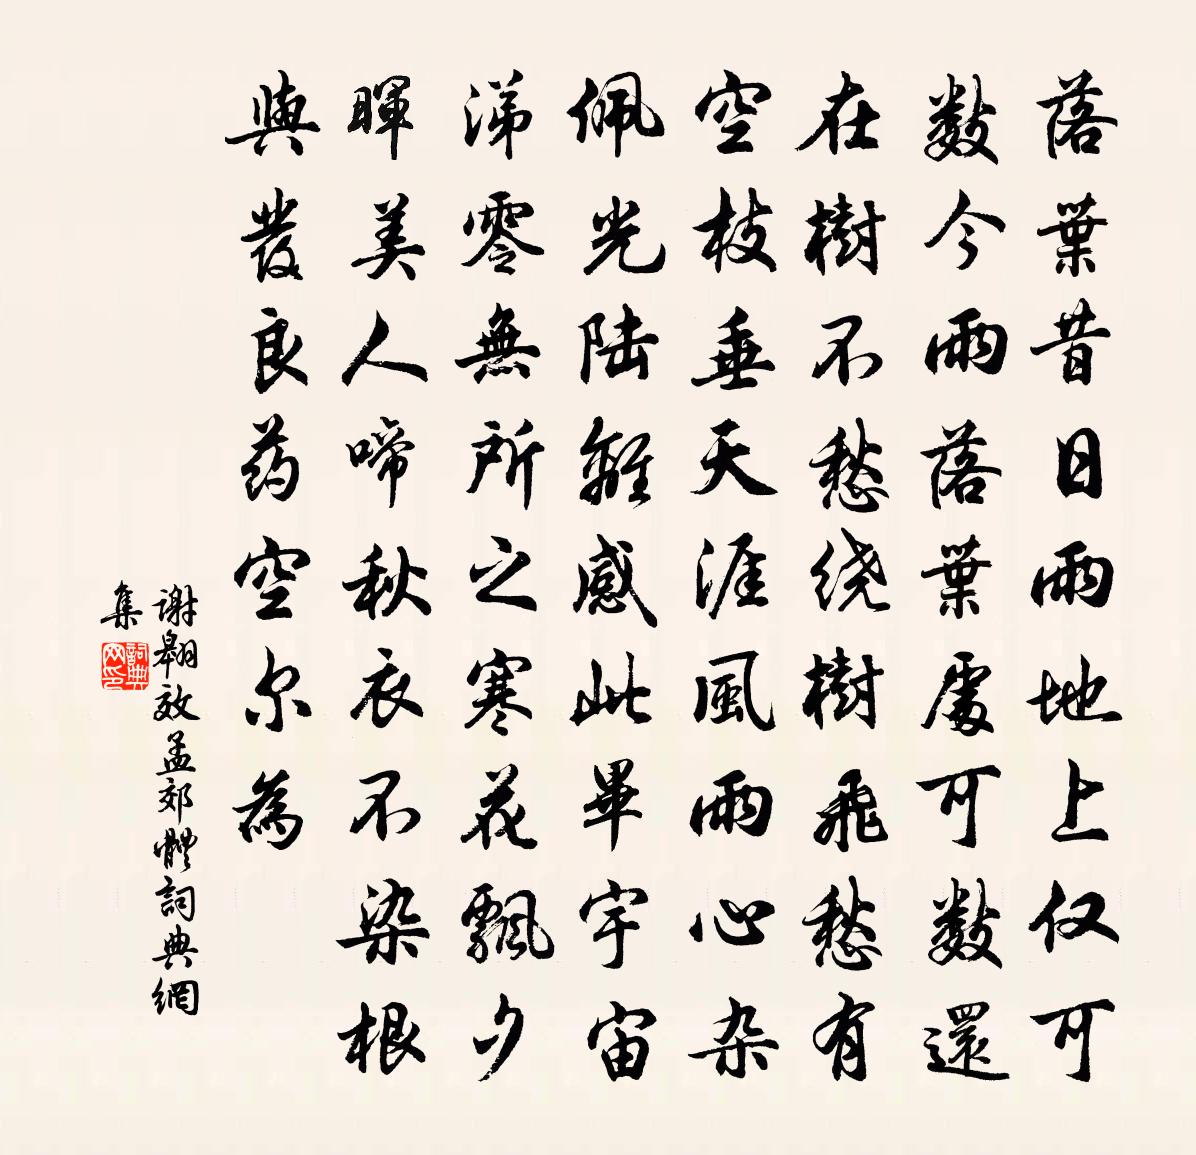 落葉昔日雨地上仅可
數今雨落葉處可數還
在樹不愁绕樹飛愁有
空枝垂天涯風雨心杂
佩光陆離感此畢宇宙
涕零無所之寒花飄夕
暉美人啼秋衣不染根
與發良药空尔為
谢翱效孟郊體詞典網
集
詞典网印